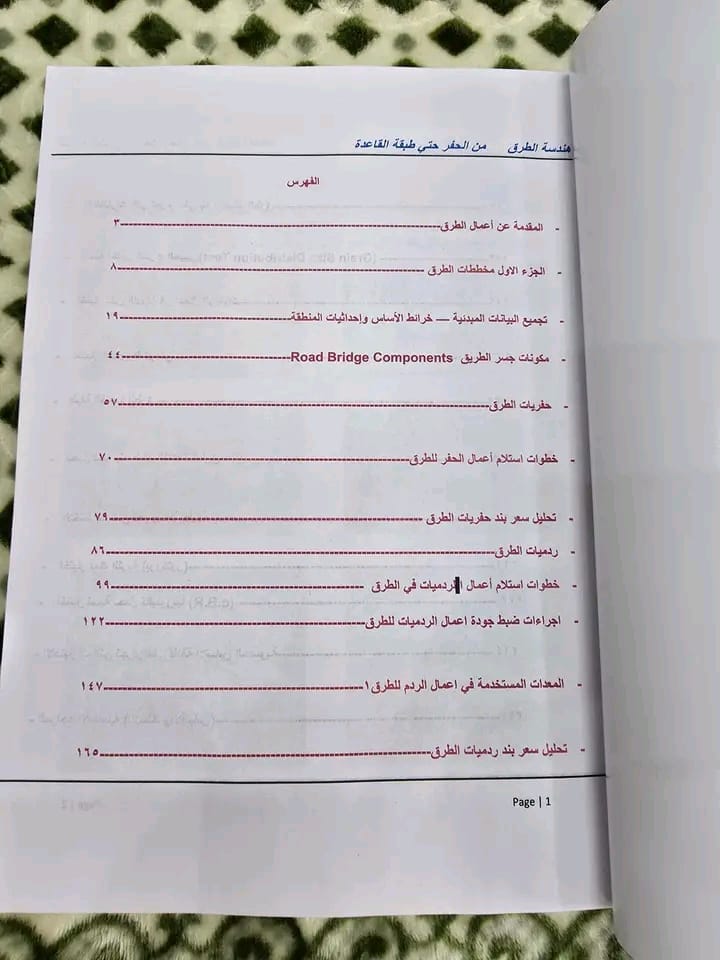 هندسة الطرق من الحفر حتي طبقة القاعدة
الفهرس
- المقدمة عن أعمال الطرق٣
- الجزء الاول مخططات الطرق ٨
- تجميع البيانات المبدئية — خرائط الأساس وإحداثيات المنطقة١٩
- مكونات جسر الطريق Road Bridge Components٤٤
- حفريات الطرق٥٧
- خطوات استلام أعمال الحفر للطرق٧٠
- تحليل سعر بند حفريات الطرق ٧٩
- ردميات الطرق٨٦
- خطوات استلام أعمال الردميات في الطرق ٩٩
- اجراءات ضبط جودة اعمال الردميات للطرق١٢٢
- المعدات المستخدمة في اعمال الردم للطرق١ ١٤٧
- تحليل سعر بند ردميات الطرق١٦٥
Page | 1